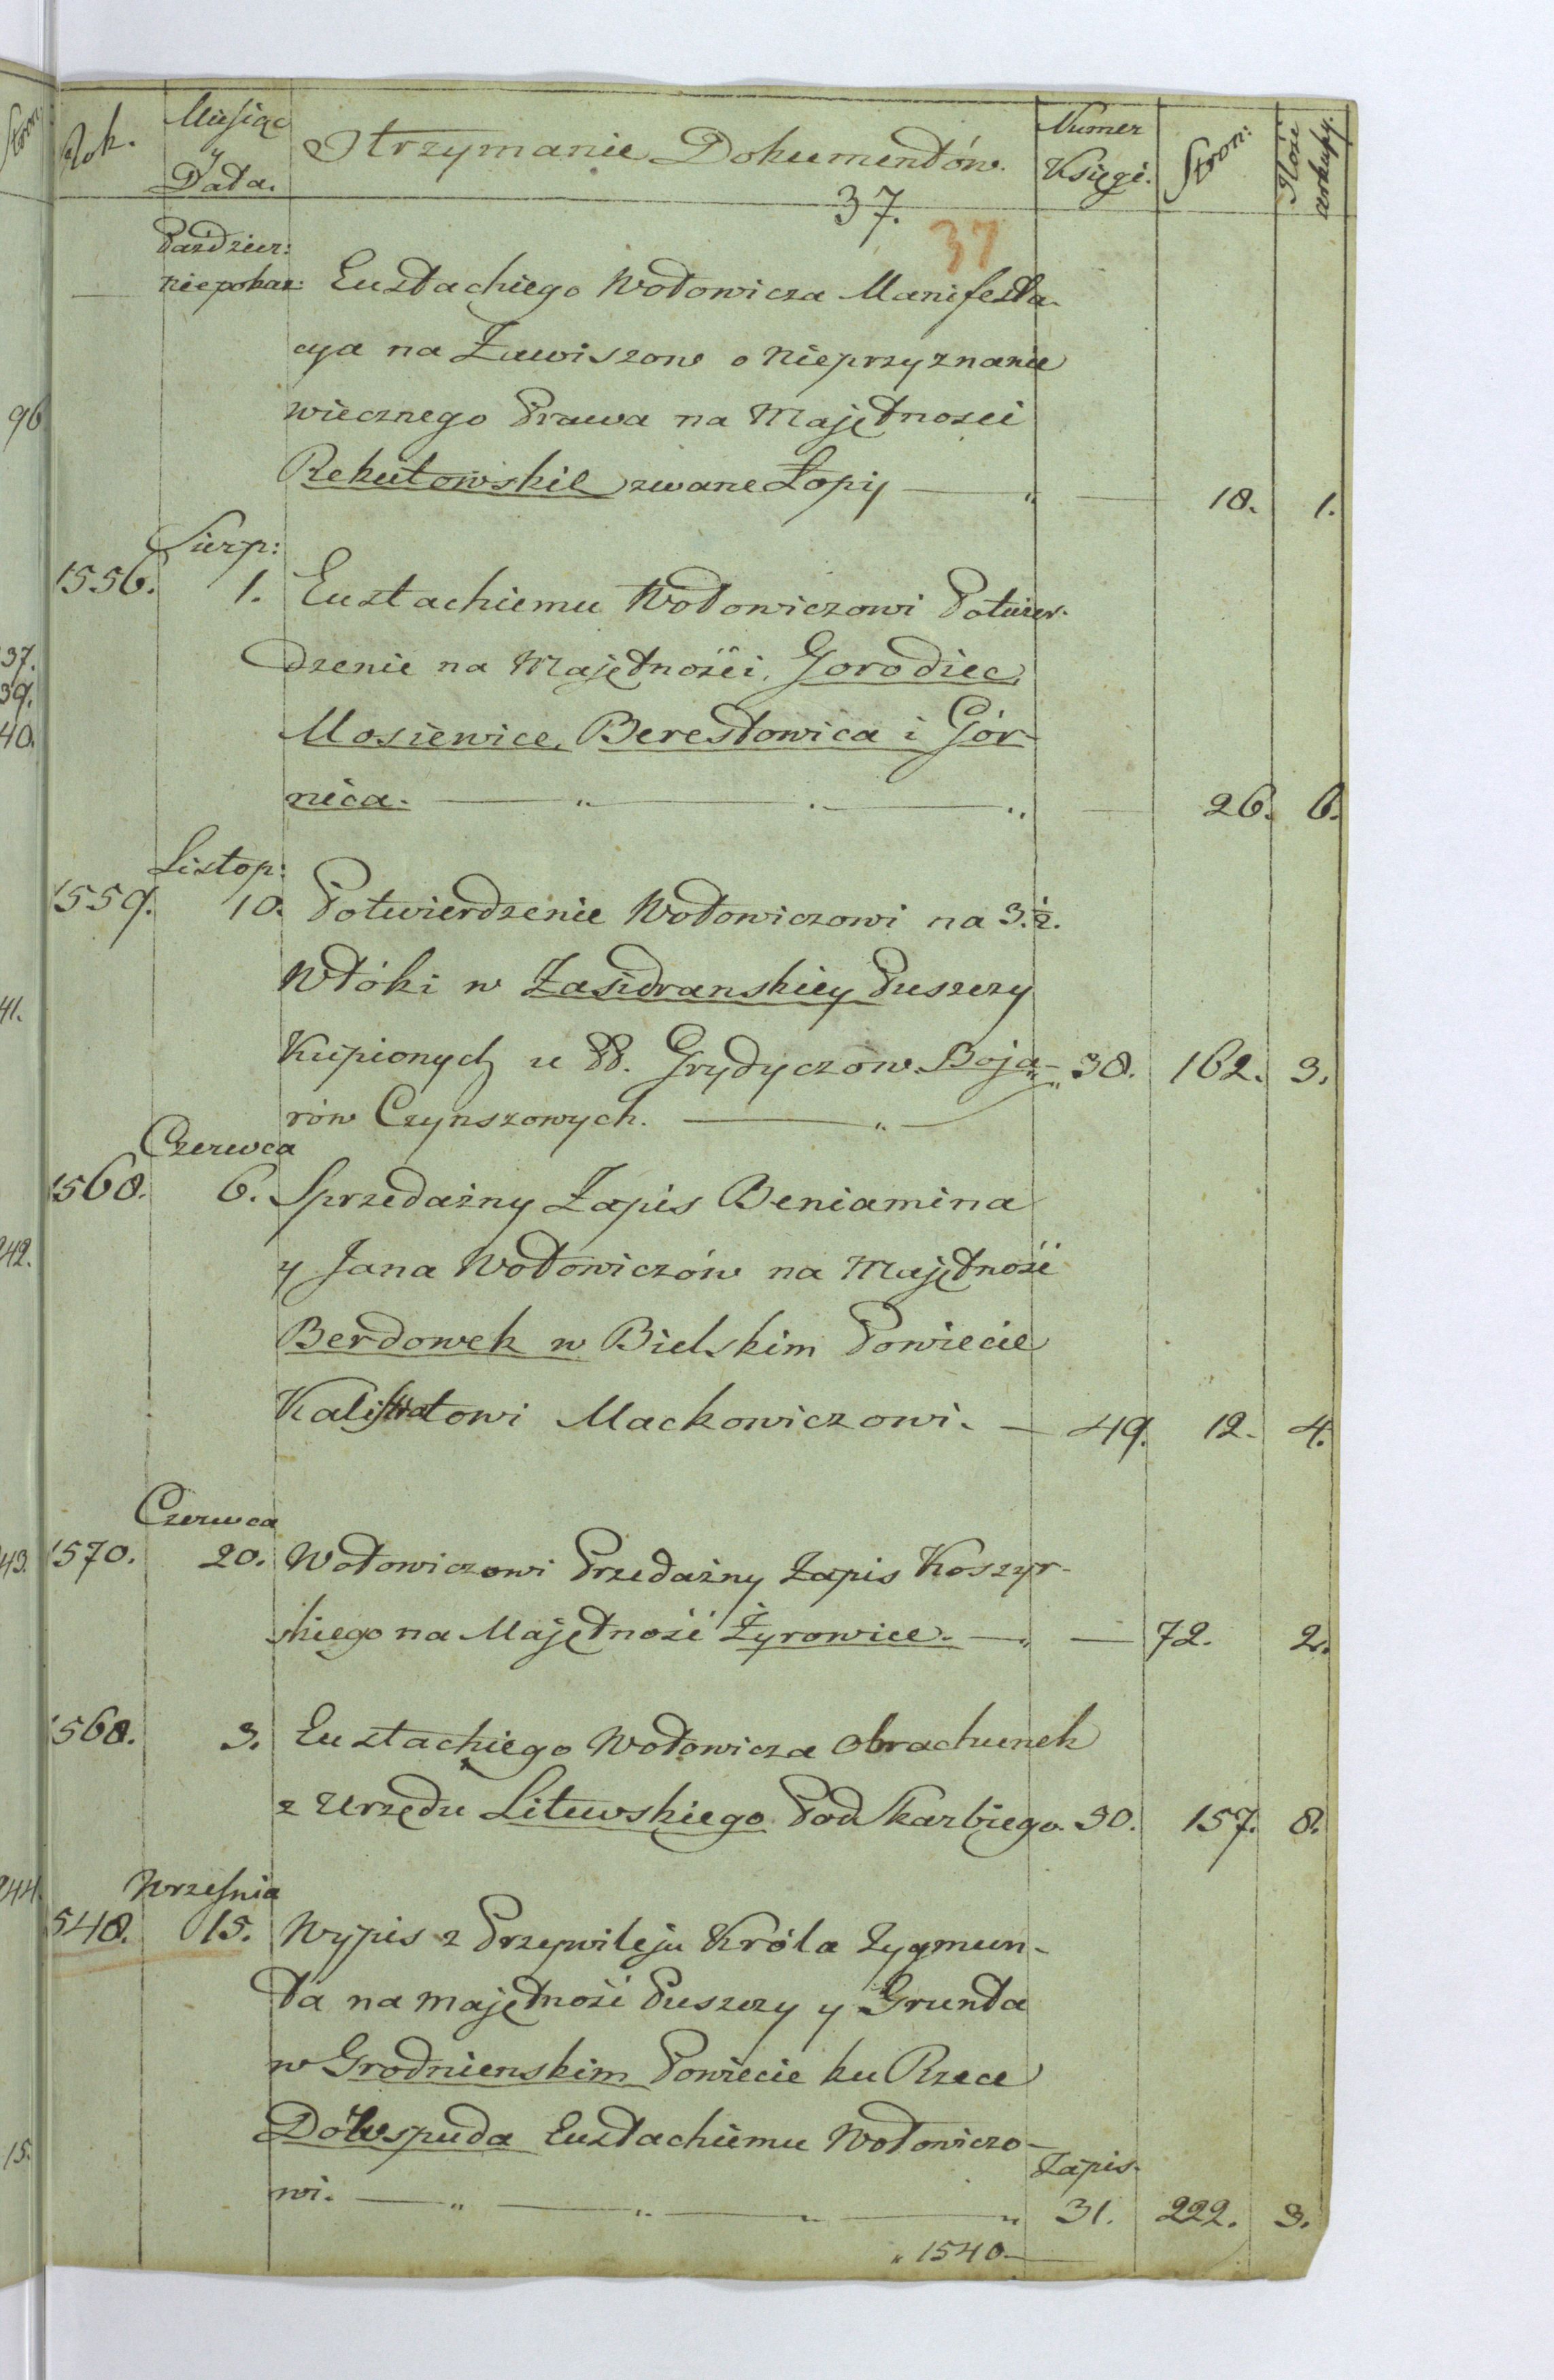 Rok. Miesiąc y Data. Otrzymanie Dokumentów. Numer Księgi. Stron: Ilość arkuszy.
37.
37
Paździer:
niepokaz: Eustachiego Wołowicza Manifesta-
cya na Zawiszow o nieprzyznanie
wiecznego Prawa na Majętnosci
Rekutowskie zwane Łopy — 18. 1.
Sierp:
1556. 1. Eustachiemu Wołowiczowi Potwier-
dzenie na Majętności, Gorodiec,
Mosiewice, Berestowica i Gór-
nica. — 26. 6.
Listop:
1559. 10. Potwierdzenie Wołowiczowi na 3. ½.
Włóki w Zasidranskiey Puszczy
Kupionych u PP. Grydyczow Boja- 38. 162. 3.
rów Czynszowych. —
Czerwca
1568. 6. Sprzedażny Zapis Beniamina
y Jana Wołowiczów na Majętność
Berdowek w Bielskim Powiecie
Kalistratowi Mackowiczowi. — 49. 12. 4.
Czerwca
1570. 20. Wołowiczowi Przedażny Zapis Koszyr-
skiego na Majętność Żyrowice. — 72. 2.
1568. 3. Eustachiego Wołowicza obrachunek
z Urzędu Litewskiego Podskarbiego. 30. 157. 8.
Września
1548. 15. Wypis z Przywileju Króla Zygmun-
ta na majętność Puszczy y Grunta
w Grodnienskim Powiecie ku Rzece
Dowspuda Eustachiemu Wołowiczo-
Zapis.
wi. — 31. 222. 3.
" 1540 —